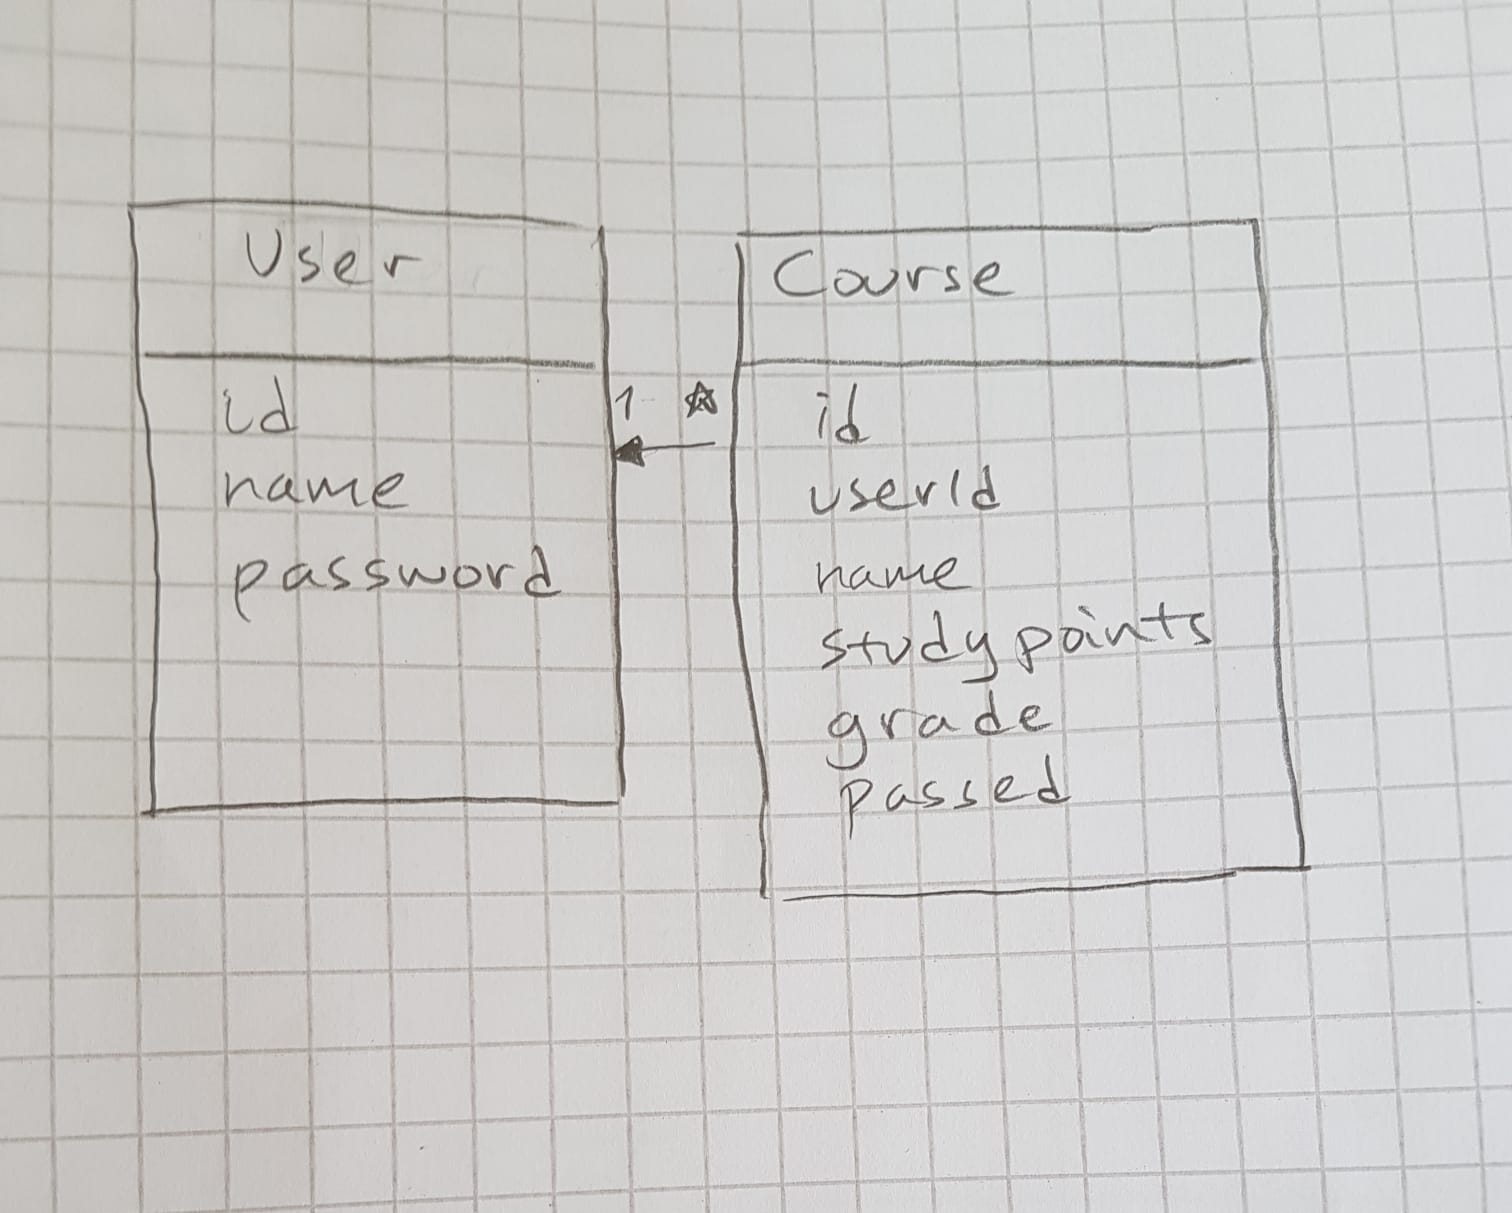 User
id
name
password
1 *
Course
id
userId
name
studypoints
grade
passed